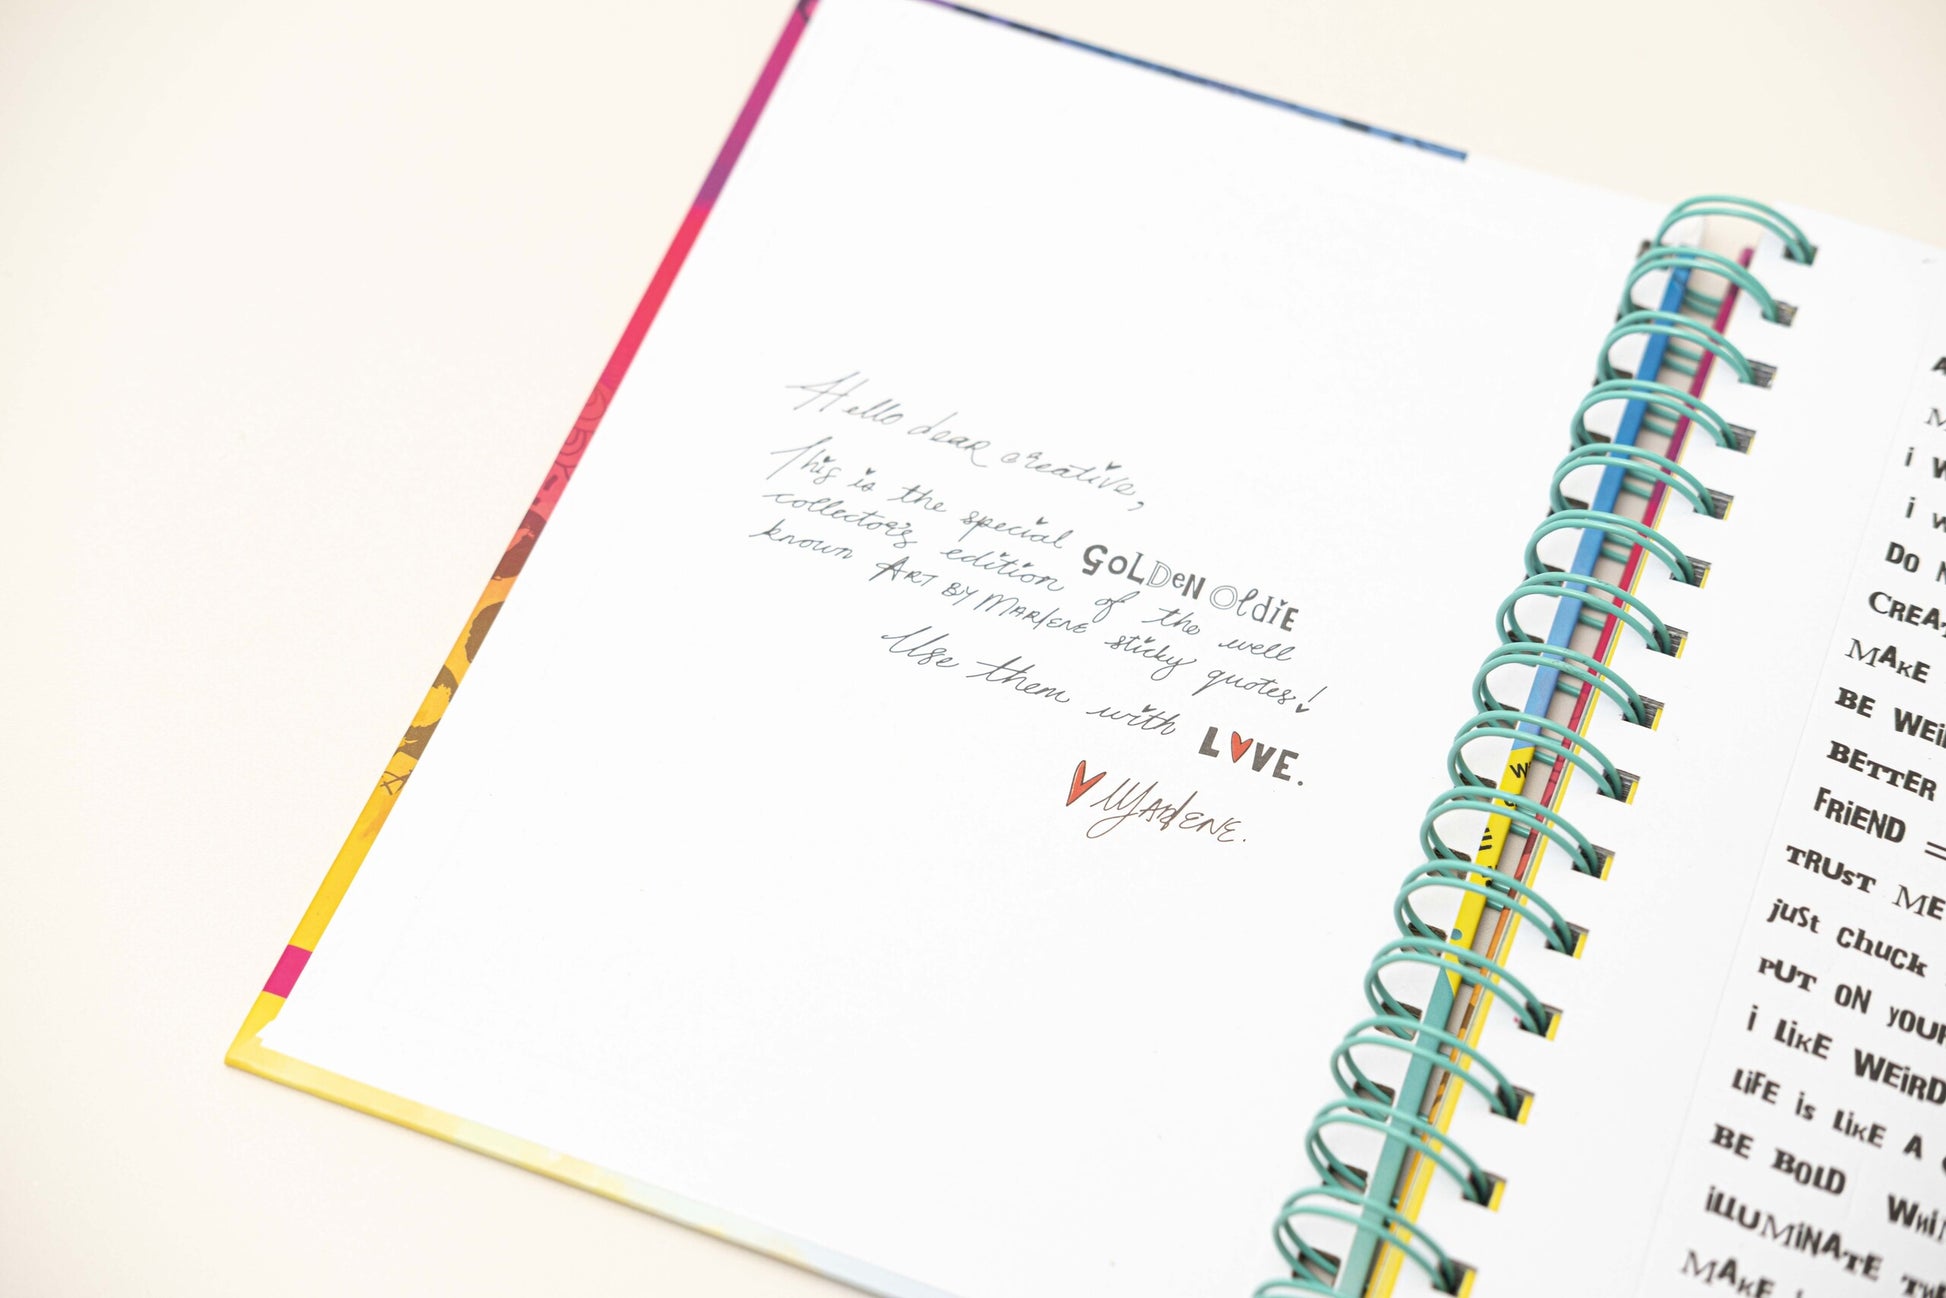 Hello dear creative,
This is the special GOLDEN OLDIE
collector's edition of the well
known ART BY MARLENE sticky quotes!
Use them with LOVE.
MARLENE.
i
i
DO
MAKE
BE
BETTER
FRiEND =
TRUST ME
just chuck
PUT ON
i LiKE WEiRD
LiFE is LiKE A
BE BOLD
iLLUMiNATE
MAKE